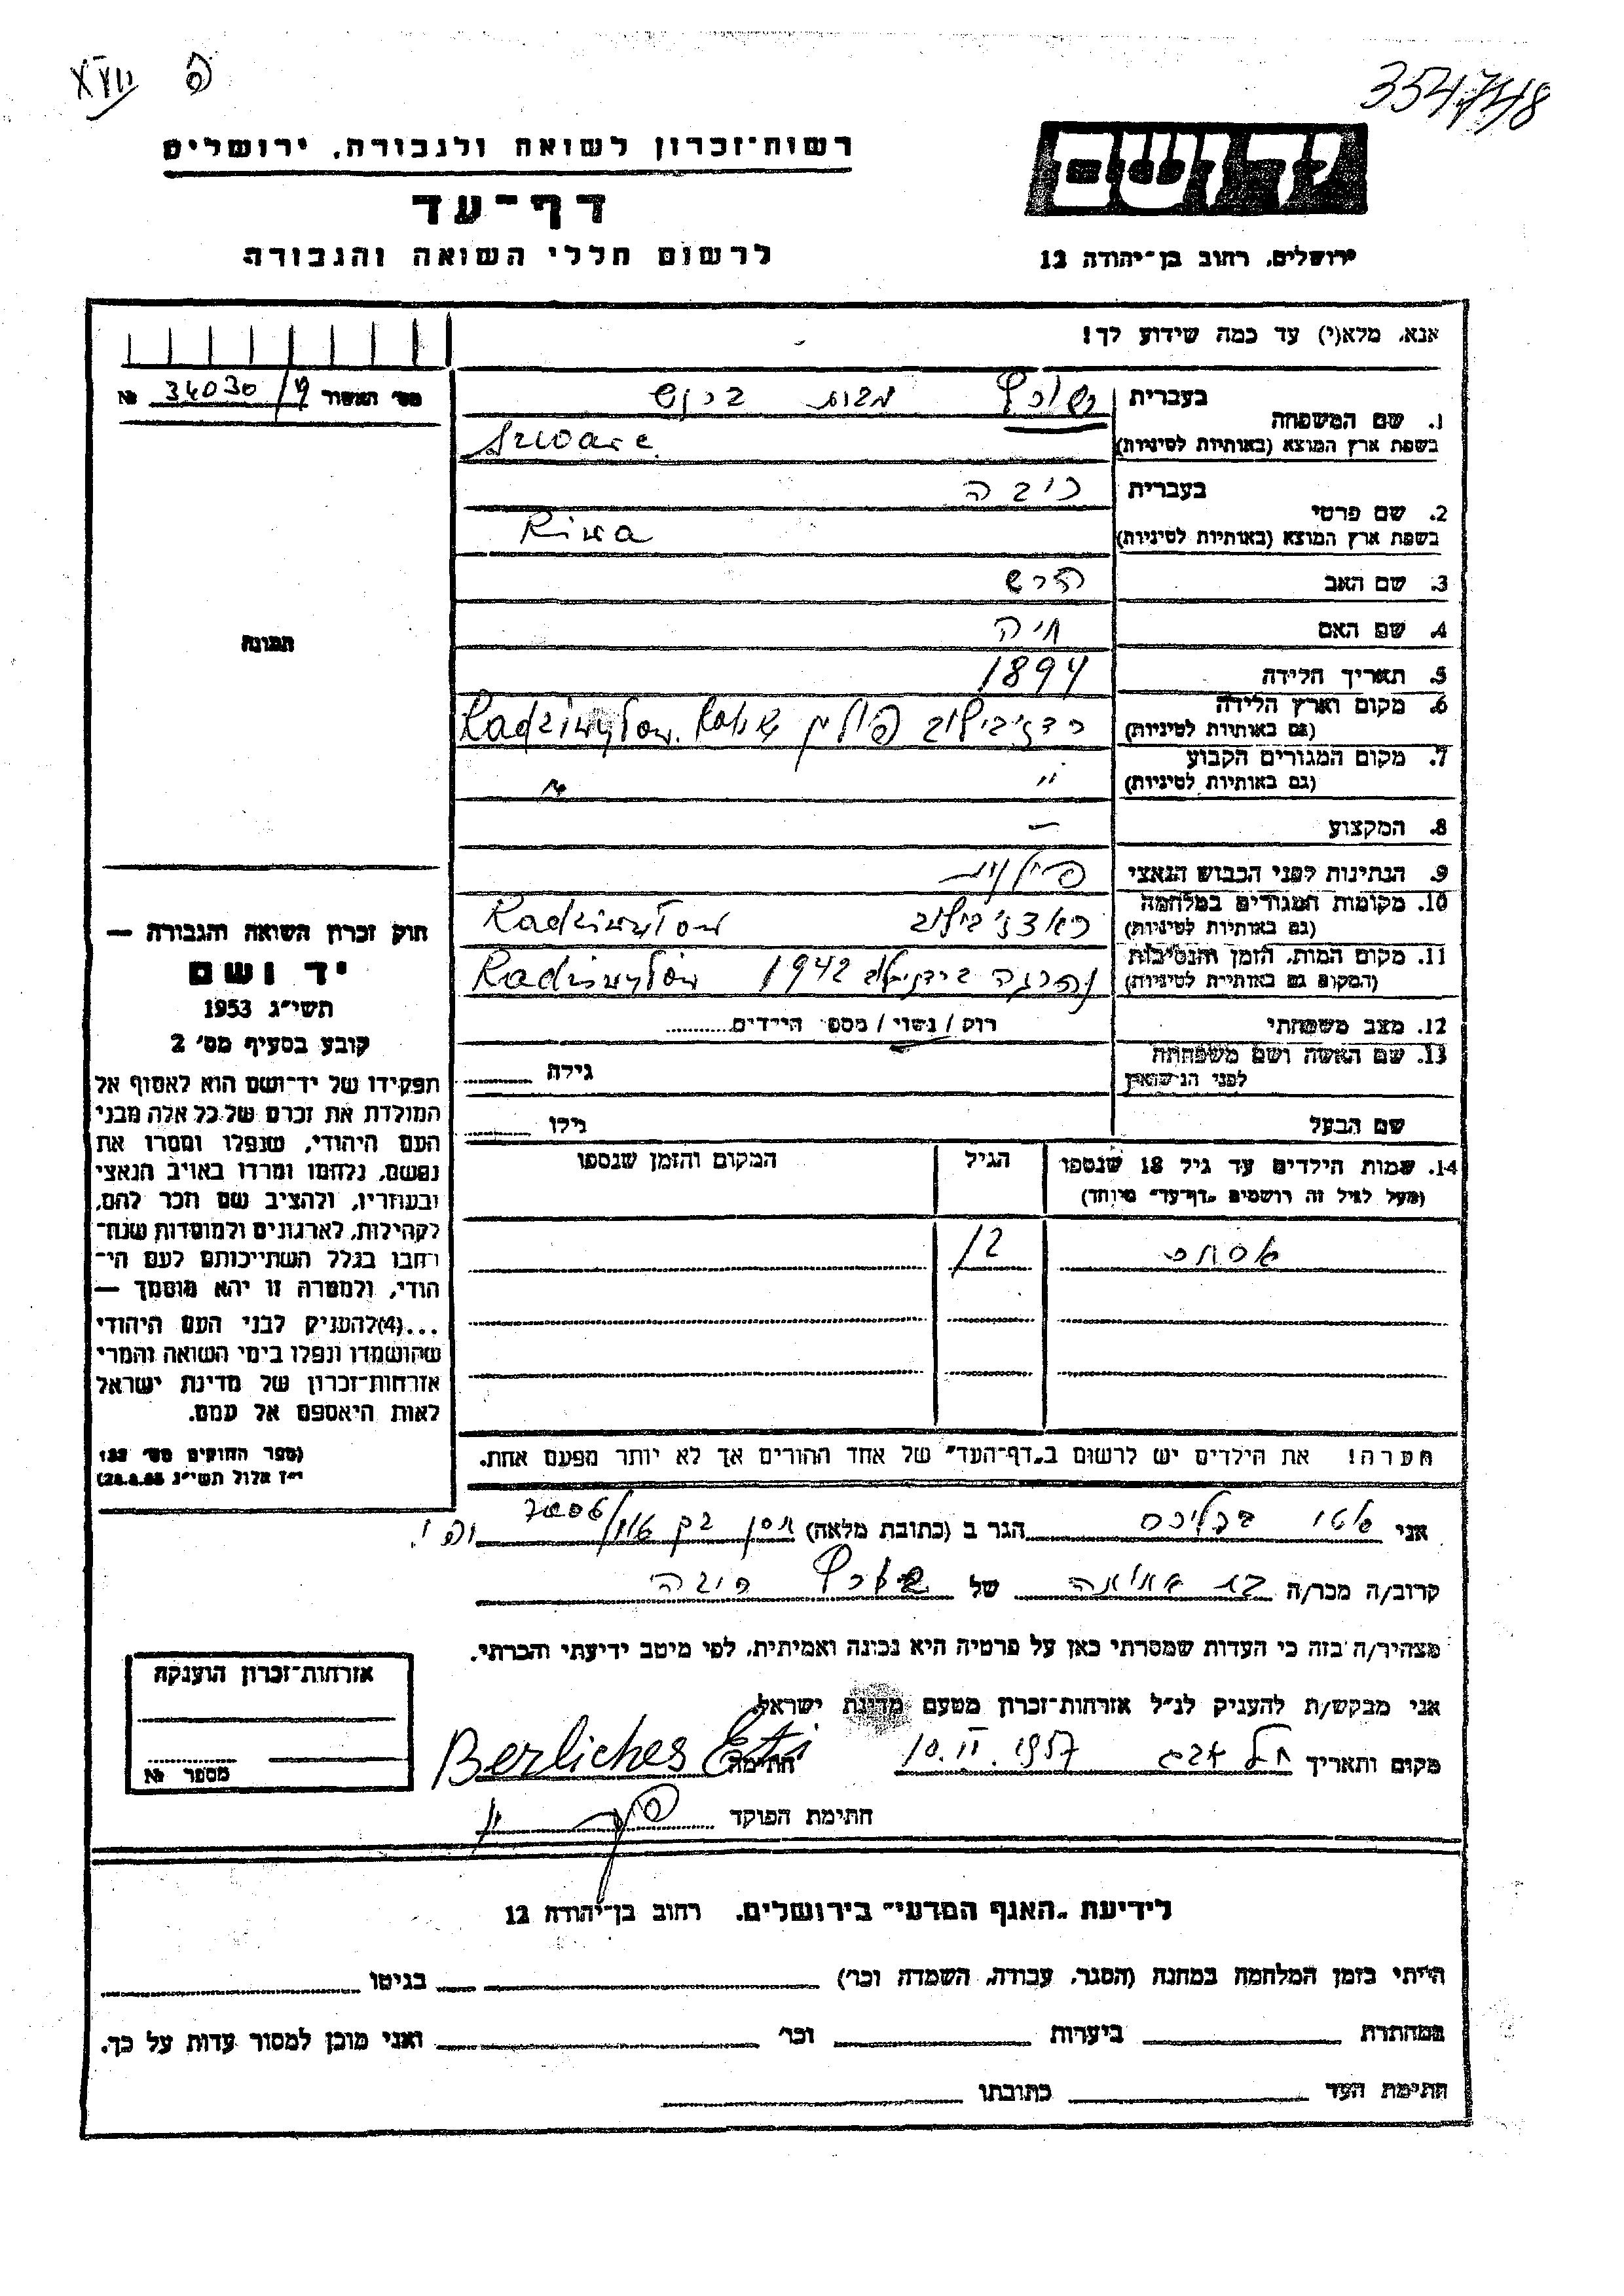 XVII פ
354748
רשות־זכרון לשואה ולגבורה, ירושלים
יד ושם
דף־עד
לרשום חללי השואה והגבורה
ירושלים, רחוב בן־יהודה 12
אנא, מלא(י) עד כמה שידוע לך!
מס׳ האשור 34030/ № 
1. שם המשפחה
בעברית
בשפת ארץ המוצא (באותיות לטיניות) Szwarc
2. שם פרטי
בעברית ריבה
בשפת ארץ המוצא (באותיות לטיניות) Riwa
3. שם האב הרש
4. שם האם חיה
5. תאריך הלידה 1894
6. מקום וארץ הלידה
(גם באותיות לטיניות) רדזיבילוב פולין Radziwyłow
7. מקום המגורים הקבוע
(גם באותיות לטיניות) "
8. המקצוע —
9. הנתינות לפני הכבוש הנאצי פולנית
10. מקומות המגורים במלחמה
(גם באותיות לטיניות) ראדזיבילוב Radziwyłow
11. מקום המות, הזמן והנסיבות
(המקום גם באותיות לטיניות) נהרגה ברדזיבילוב 1942 Radziwyłów
12. מצב משפחתי רווק / נשוי / מספר הילדים
13. שם האשה ושם משפחתה
לפני הנישואין גילה
שם הבעל גילו
14. שמות הילדים עד גיל 18 שנספו הגיל המקום והזמן שנספו
(מעל לגיל זה רושמים „דף־עד״ מיוחד)
אסתר 12
הערה! את הילדים יש לרשום ב„דף־העד״ של אחד ההורים אך לא יותר מפעם אחת.
תמונה
חוק זכרון השואה והגבורה —
יד ושם
תשי״ג 1953
קובע בסעיף מס׳ 2
תפקידו של יד־ושם הוא לאסוף אל
המולדת את זכרם של כל אלה מבני
העם היהודי, שנפלו ומסרו את
נפשם, נלחמו ומרדו באויב הנאצי
ובעוזריו, ולהציב שם וזכר להם,
לקהילות, לארגונים ולמוסדות שנח־
רבו בגלל השתייכותם לעם הי־
הודי, ולמטרה זו יהא מוסמך —
...(4)להעניק לבני העם היהודי
שהושמדו ונפלו בימי השואה והמרי
אזרחות־זכרון של מדינת ישראל
לאות היאספם אל עמם.
(ספר החוקים מס׳ 132
י״ז אלול תשי״ג 28.8.53)
אני אטי ברליכס הגר ב (כתובת מלאה)
קרוב/ה מכר/ה של שוורץ ריבה
מצהיר/ה בזה כי העדות שמסרתי כאן על פרטיה היא נכונה ואמיתית, לפי מיטב ידיעתי והכרתי.
אני מבקש/ת להעניק לנ״ל אזרחות־זכרון מטעם מדינת ישראל
מקום ותאריך תל אביב 10.II.1957 חתימה Berliches Eti
חתימת הפוקד
אזרחות־זכרון הוענקה
מספר №
לידיעת „האגף המדעי״ בירושלים, רחוב בן־יהודה 12
הייתי בזמן המלחמה במחנה (הסגר, עבודה, השמדה וכר׳) בגיטו
במחתרת ביערות וכר׳ ואני מוכן למסור עדות על כך.
חתימת העד כתובתו